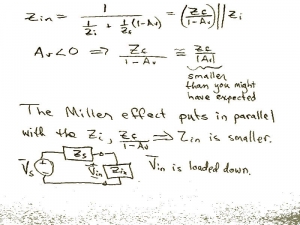 Zin = 1 / (1/Zi + 1/Zc (1-Av)) = (Zc / 1-Av) || Zi
Av<0 ⇒ Zc / 1-Av ≅ Zc / |Av|
smaller
than you might
have expected
The Miller effect puts in parallel
with the Zi, Zc / 1-Av ⇒ Zin is smaller.
Zs
Vs Vin Zin Vin is loaded down.